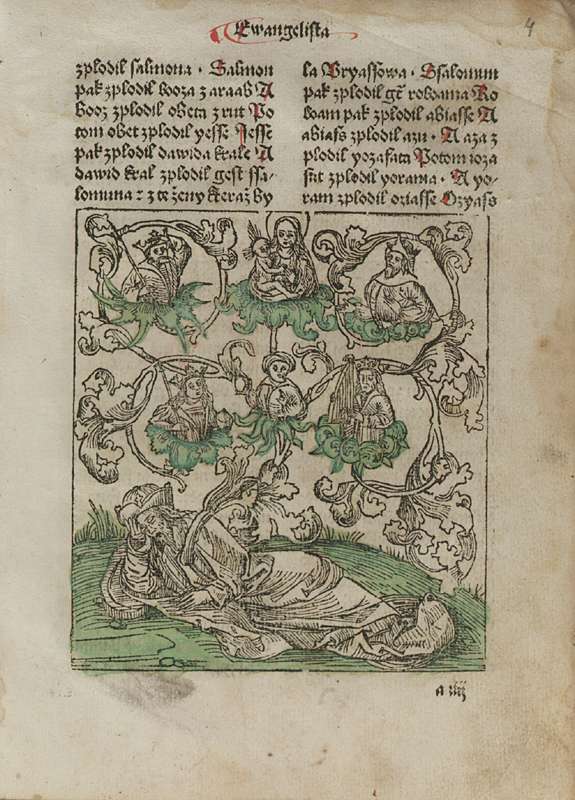 Ewangelista
4
zplodil salmona · Salmon
pak zplodil booza z araab A
booz zplodil obeta z rut Po
tom obet zplodil yesse Jesse
pak zplodil dawida krale A
dawid kral zplodil gest ssa-
lomuna z te ženy kteraž by
la Vryassowa · Ssalomun
pak zplodil roboama Ro
boam pak zplodil abiasse A
abiass zplodil azu · A aza z
plodil yozafata Potom ioza
fat zplodil yorama · A yo-
ram zplodil oziasse Ozyass
a iiij